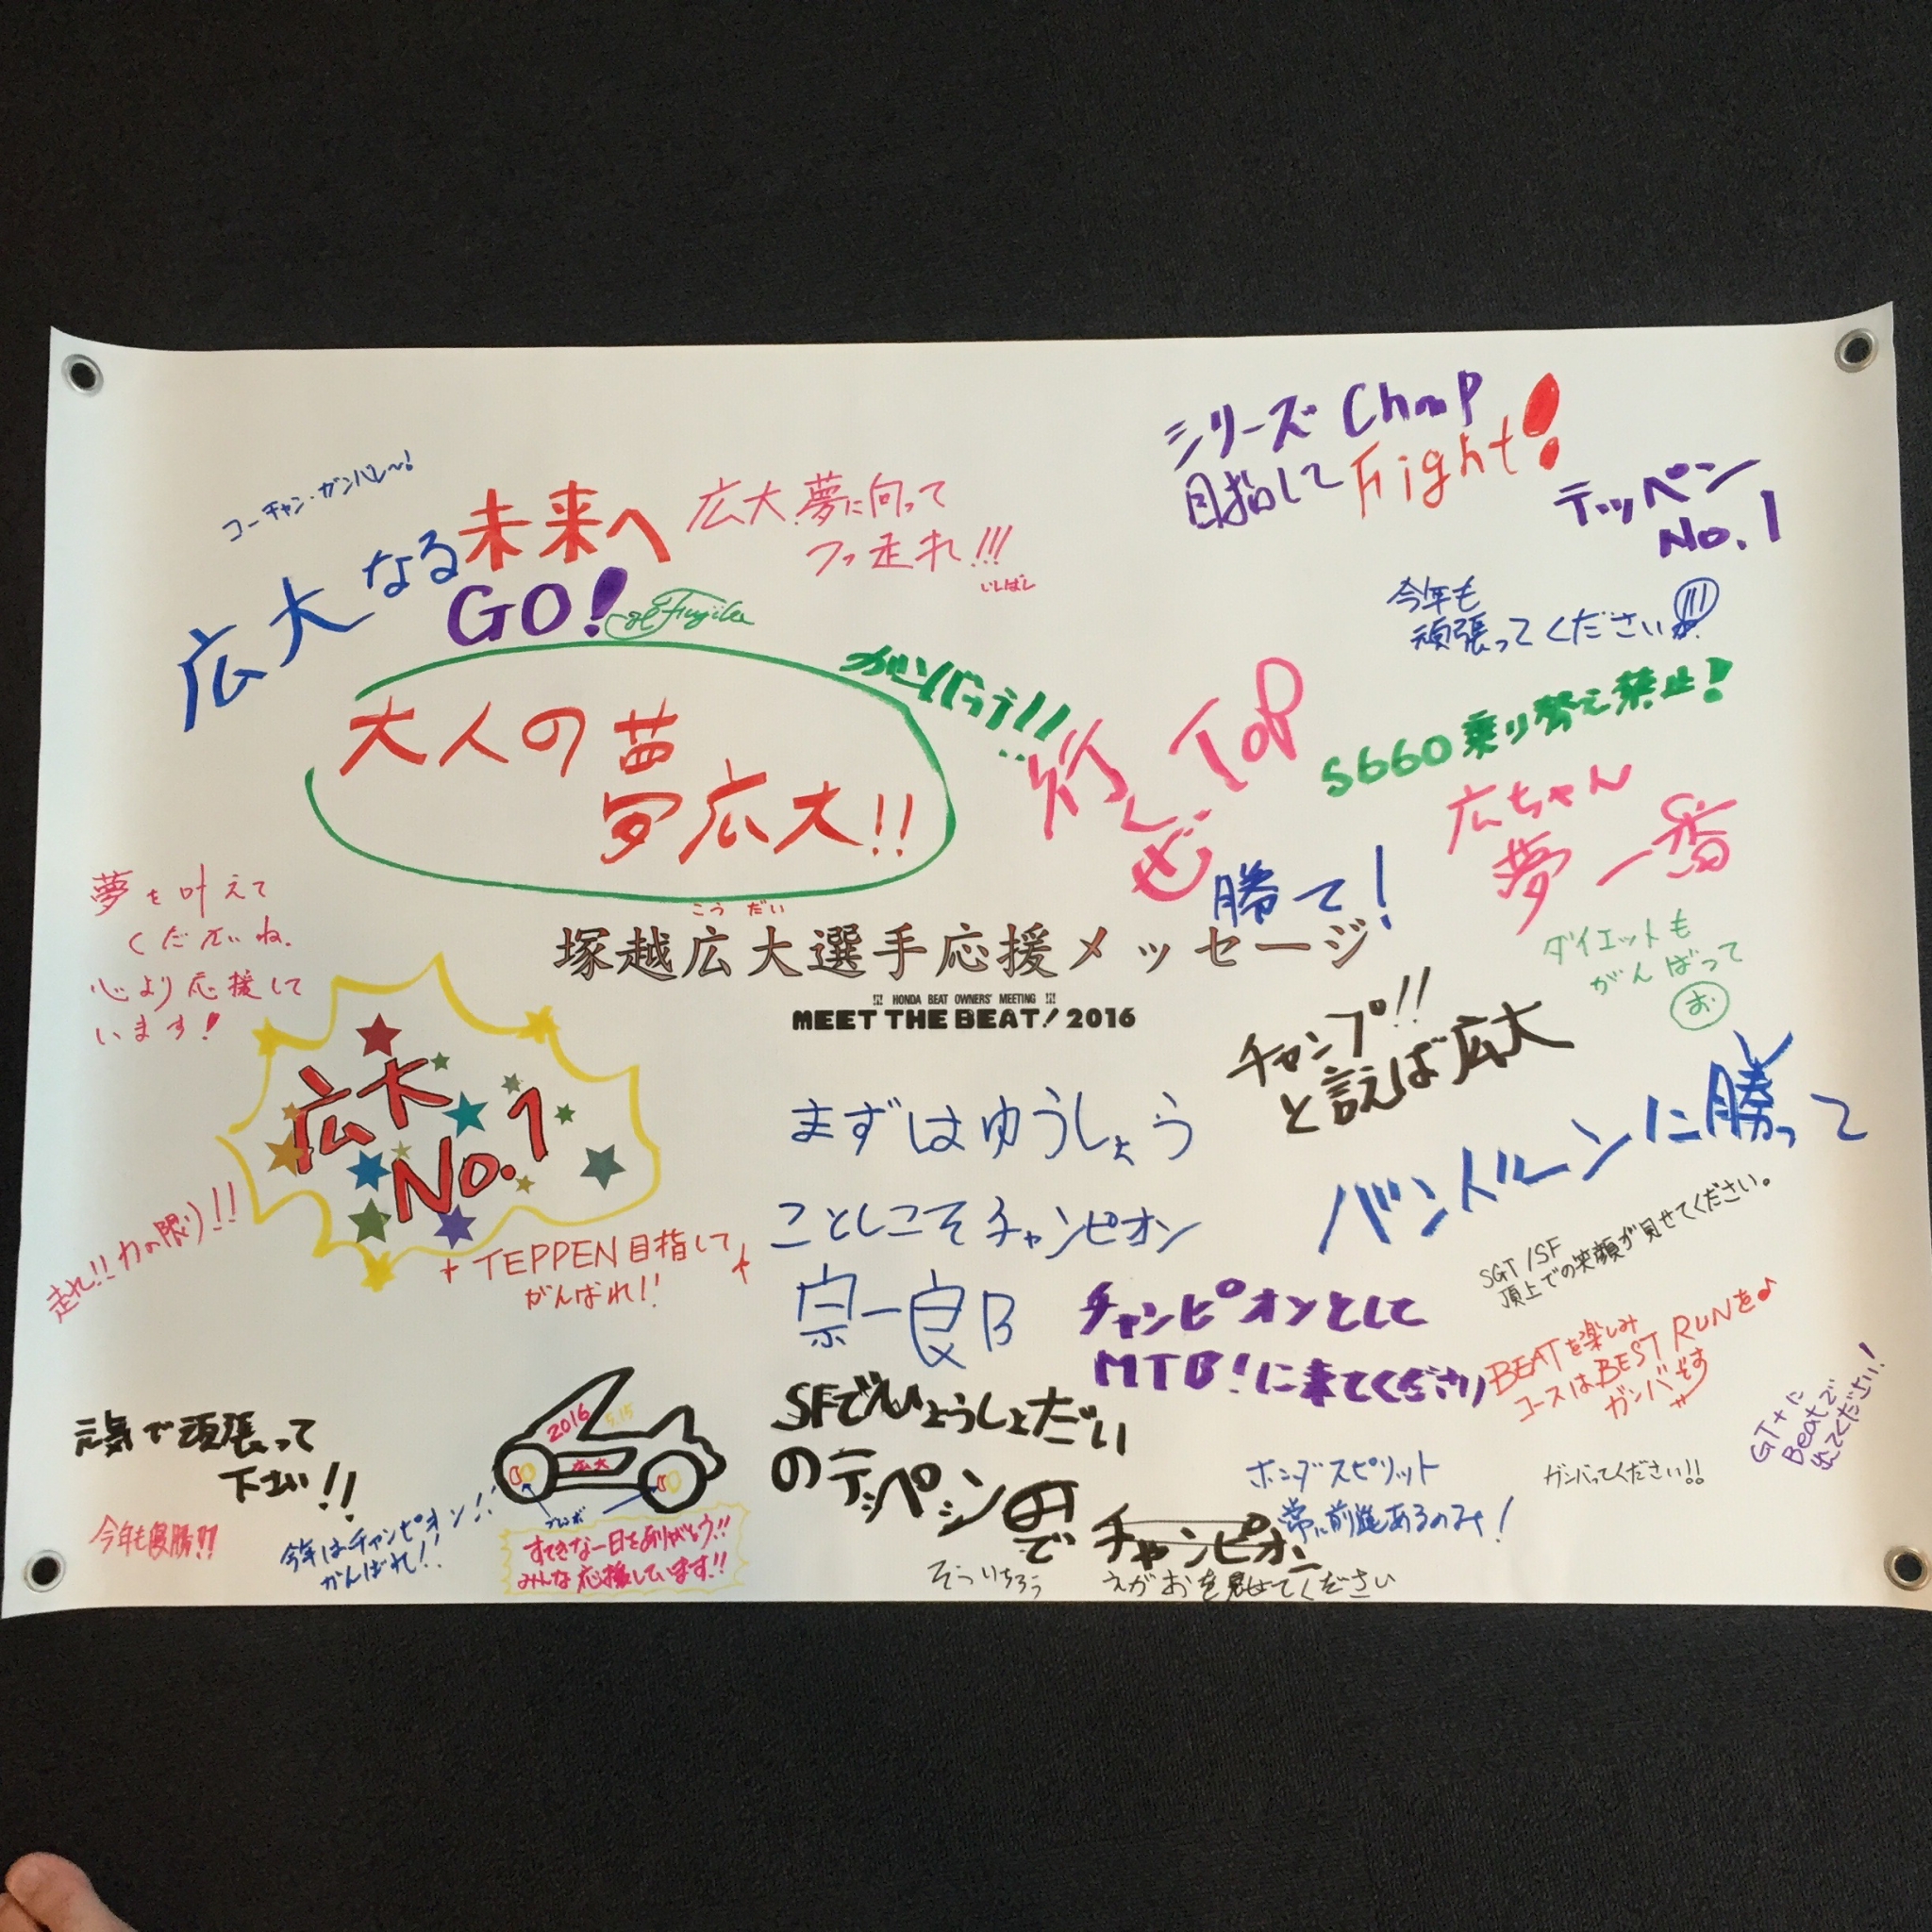 コーチャン・ガンバレ~!
広大なる未来へ
GO!
広大夢に向って
つっ走れ!!!
いしばし
シリーズ Champ
目指して Fight!
テッペン
No.1
今年も
頑張ってください!!!
大人の夢
広大!!
がんばろう!!
行くぜ TOP
S660乗り替え禁止!
広ちゃん
夢一番
勝て!
夢を叶えて
くださいね.
心より応援して
います!
こうだい
塚越広大選手応援メッセージ
!!! HONDA BEAT OWNERS' MEETING !!!
MEET THE BEAT! 2016
ダイエットも
がんばって
お
チャンプ!!
と言えば広大
広大
No.1
まずはゆうしょう
ことしこそチャンピオン
宗一良B
バンドルーンに勝って
走れ!! 力の限り!!
TEPPEN目指して
がんばれ!!
SGT/SF
頂上での笑顔が見せてください。
チャンピオンとして
MTB!に来てください
BEATを楽しみ
コースはBEST RUNを♪
ガンバです
GT+に
Beatで
来てください!
元気で頑張って
下さい!!
今年も優勝!!
今年はチャンピオン!!
がんばれ!!
2016 5.15
広大
ブレンボ
すてきな一日をありがとう!!
みんな応援しています!!
SFでひょうしょうだい
のテッペン
で
チャンピオン
そういちろう
えがおを見せてください
ホンダスピリット
常に前進あるのみ!
ガンバってください!!